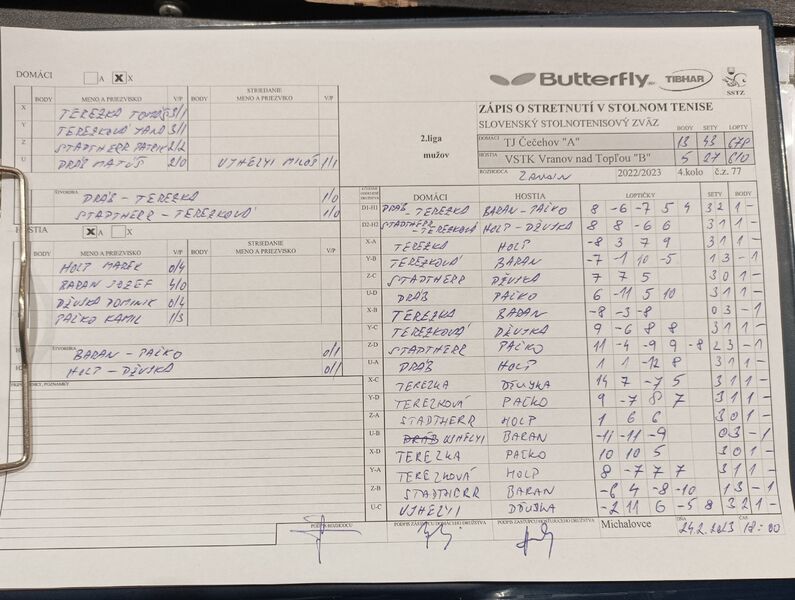 DOMÁCI A X X
Butterfly TIBHAR SSTZ
ZÁPIS O STRETNUTÍ V STOLNOM TENISE
SLOVENSKÝ STOLNOTENISOVÝ ZVÄZ
2.liga
mužov
BODY SETY LOPTY
DOMÁCI TJ Čečehov "A" 13 43 678
HOSTIA VSTK Vranov nad Topľou "B" 5 27 610
ROZHODCA 2022/2023 4.kolo č.z. 77
STRIEDANIE
BODY MENO A PRIEZVISKO V/P BODY MENO A PRIEZVISKO V/P
X TEREZKA TOMÁŠ 3/1
Y TEREZKOVÁ 3/1
Z STADTHERR PATRIK 2/2
U DRÁB MATÚŠ 2/0 UJHELYI MILOŠ 1/1
ŠTVORHRA
DRÁB - TEREZKA 1/0
STADTHERR - TEREZKOVÁ 1/0
HOSTIA X A X
STRIEDANIE
BODY MENO A PRIEZVISKO V/P BODY MENO A PRIEZVISKO V/P
HOLP MAREK 0/4
BARAN JOZEF 4/0
DŽUJKA DOMINIK 0/4
PAĽKO KAMIL 1/3
ŠTVORHRA
BARAN - PAĽKO 0/1
HOLP - DŽUJKA 0/1
PRIPOMIENKY, POZNÁMKY
DOMÁCI HOSTIA LOPTIČKY SETY BODY
D1-H1 DRÁB - TEREZKA BARAN - PAĽKO 8 -6 -7 5 4 3 2 1 -
D2-H2 STADTHERR - TEREZKOVÁ HOLP - DŽUJKA 8 8 -6 6 3 1 1 -
X-A TEREZKA HOLP -8 3 7 9 3 1 1 -
Y-B TEREZKOVÁ BARAN -7 -1 10 -5 1 3 - 1
Z-C STADTHERR DŽUJKA 7 7 5 3 0 1 -
U-D DRÁB PAĽKO 6 -11 5 10 3 1 1 -
X-B TEREZKA BARAN -8 -3 -8 0 3 - 1
Y-C TEREZKOVÁ DŽUJKA 9 -6 8 8 3 1 1 -
Z-D STADTHERR PAĽKO 11 -4 -9 9 -8 2 3 - 1
U-A DRÁB HOLP 1 1 -12 8 3 1 1 -
X-C TEREZKA DŽUJKA 14 7 -7 5 3 1 1 -
Y-D TEREZKOVÁ PAĽKO 9 -7 8 7 3 1 1 -
Z-A STADTHERR HOLP 1 6 6 3 0 1 -
U-B DRÁB UJHELYI BARAN -11 -11 -9 0 3 - 1
X-D TEREZKA PAĽKO 10 10 5 3 0 1 -
Y-A TEREZKOVÁ HOLP 8 -7 7 7 3 1 1 -
Z-B STADTHERR BARAN -6 4 -8 -10 1 3 - 1
U-C UJHELYI DŽUJKA -2 11 6 -5 8 3 2 1 -
PODPIS ROZHODCU PODPIS ZÁSTUPCU DOMÁCEHO DRUŽSTVA PODPIS ZÁSTUPCU HOSŤUJÚCEHO DRUŽSTVA Michalovce DŇA 24.2.2023 ČAS 18:00